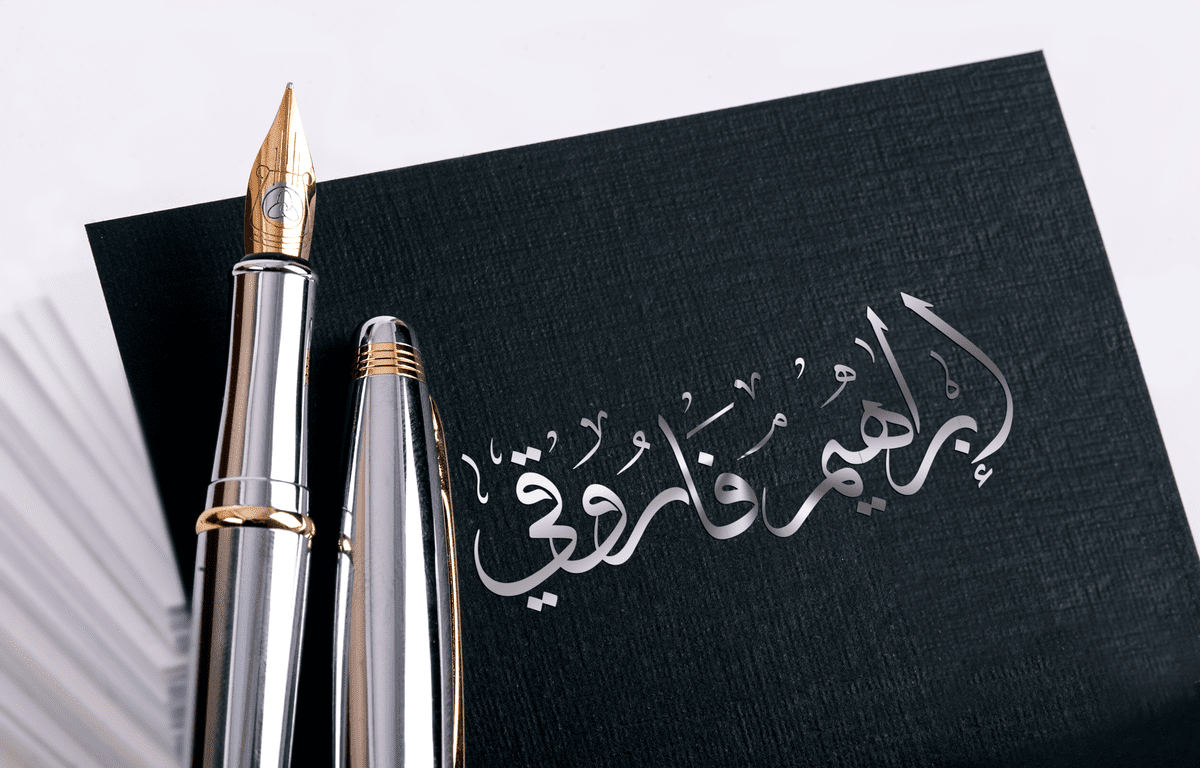 إبراهيم فاروقي